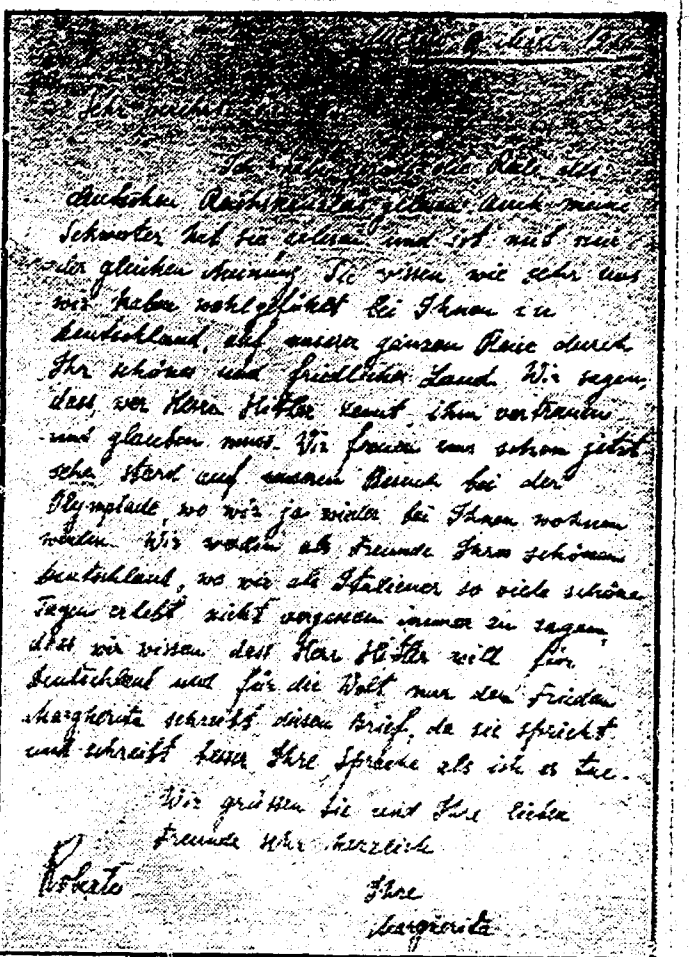 März 19
Sehr
Ich habe die Rede des
deutschen Reichskanzlers gelesen. Auch meine
Schwester hat sie gelesen und ist mit mir
der gleichen Meinung. Sie wissen wie sehr uns
wir haben wohlgefühlt bei Ihnen in
Deutschland, auf unserer ganzen Reise durch
Ihr schönes und friedliches Land. Wir sagen,
dass, wer Herrn Hitler kennt ihm vertrauen
und glauben muss. Wir freuen uns schon jetzt
sehr stark auf unseren Besuch bei der
Olympiade, wo wir ja wieder bei Ihnen wohnen
werden. Wir werden als Freunde Ihres schönen
Deutschland, wo wir als Italiener so viele schöne
Tagen erlebt nicht vergessen immer zu sagen,
dass wir wissen dass Herr Hitler will für
Deutschland und für die Welt nur den Frieden
Margherita schreibt diesen Brief, da sie spricht
und schreibt besser Ihre Sprache als ich es tue.
Wir grüssen Sie und Ihre lieben
Freunde sehr herzlich
Roberto
Ihre
Margherita